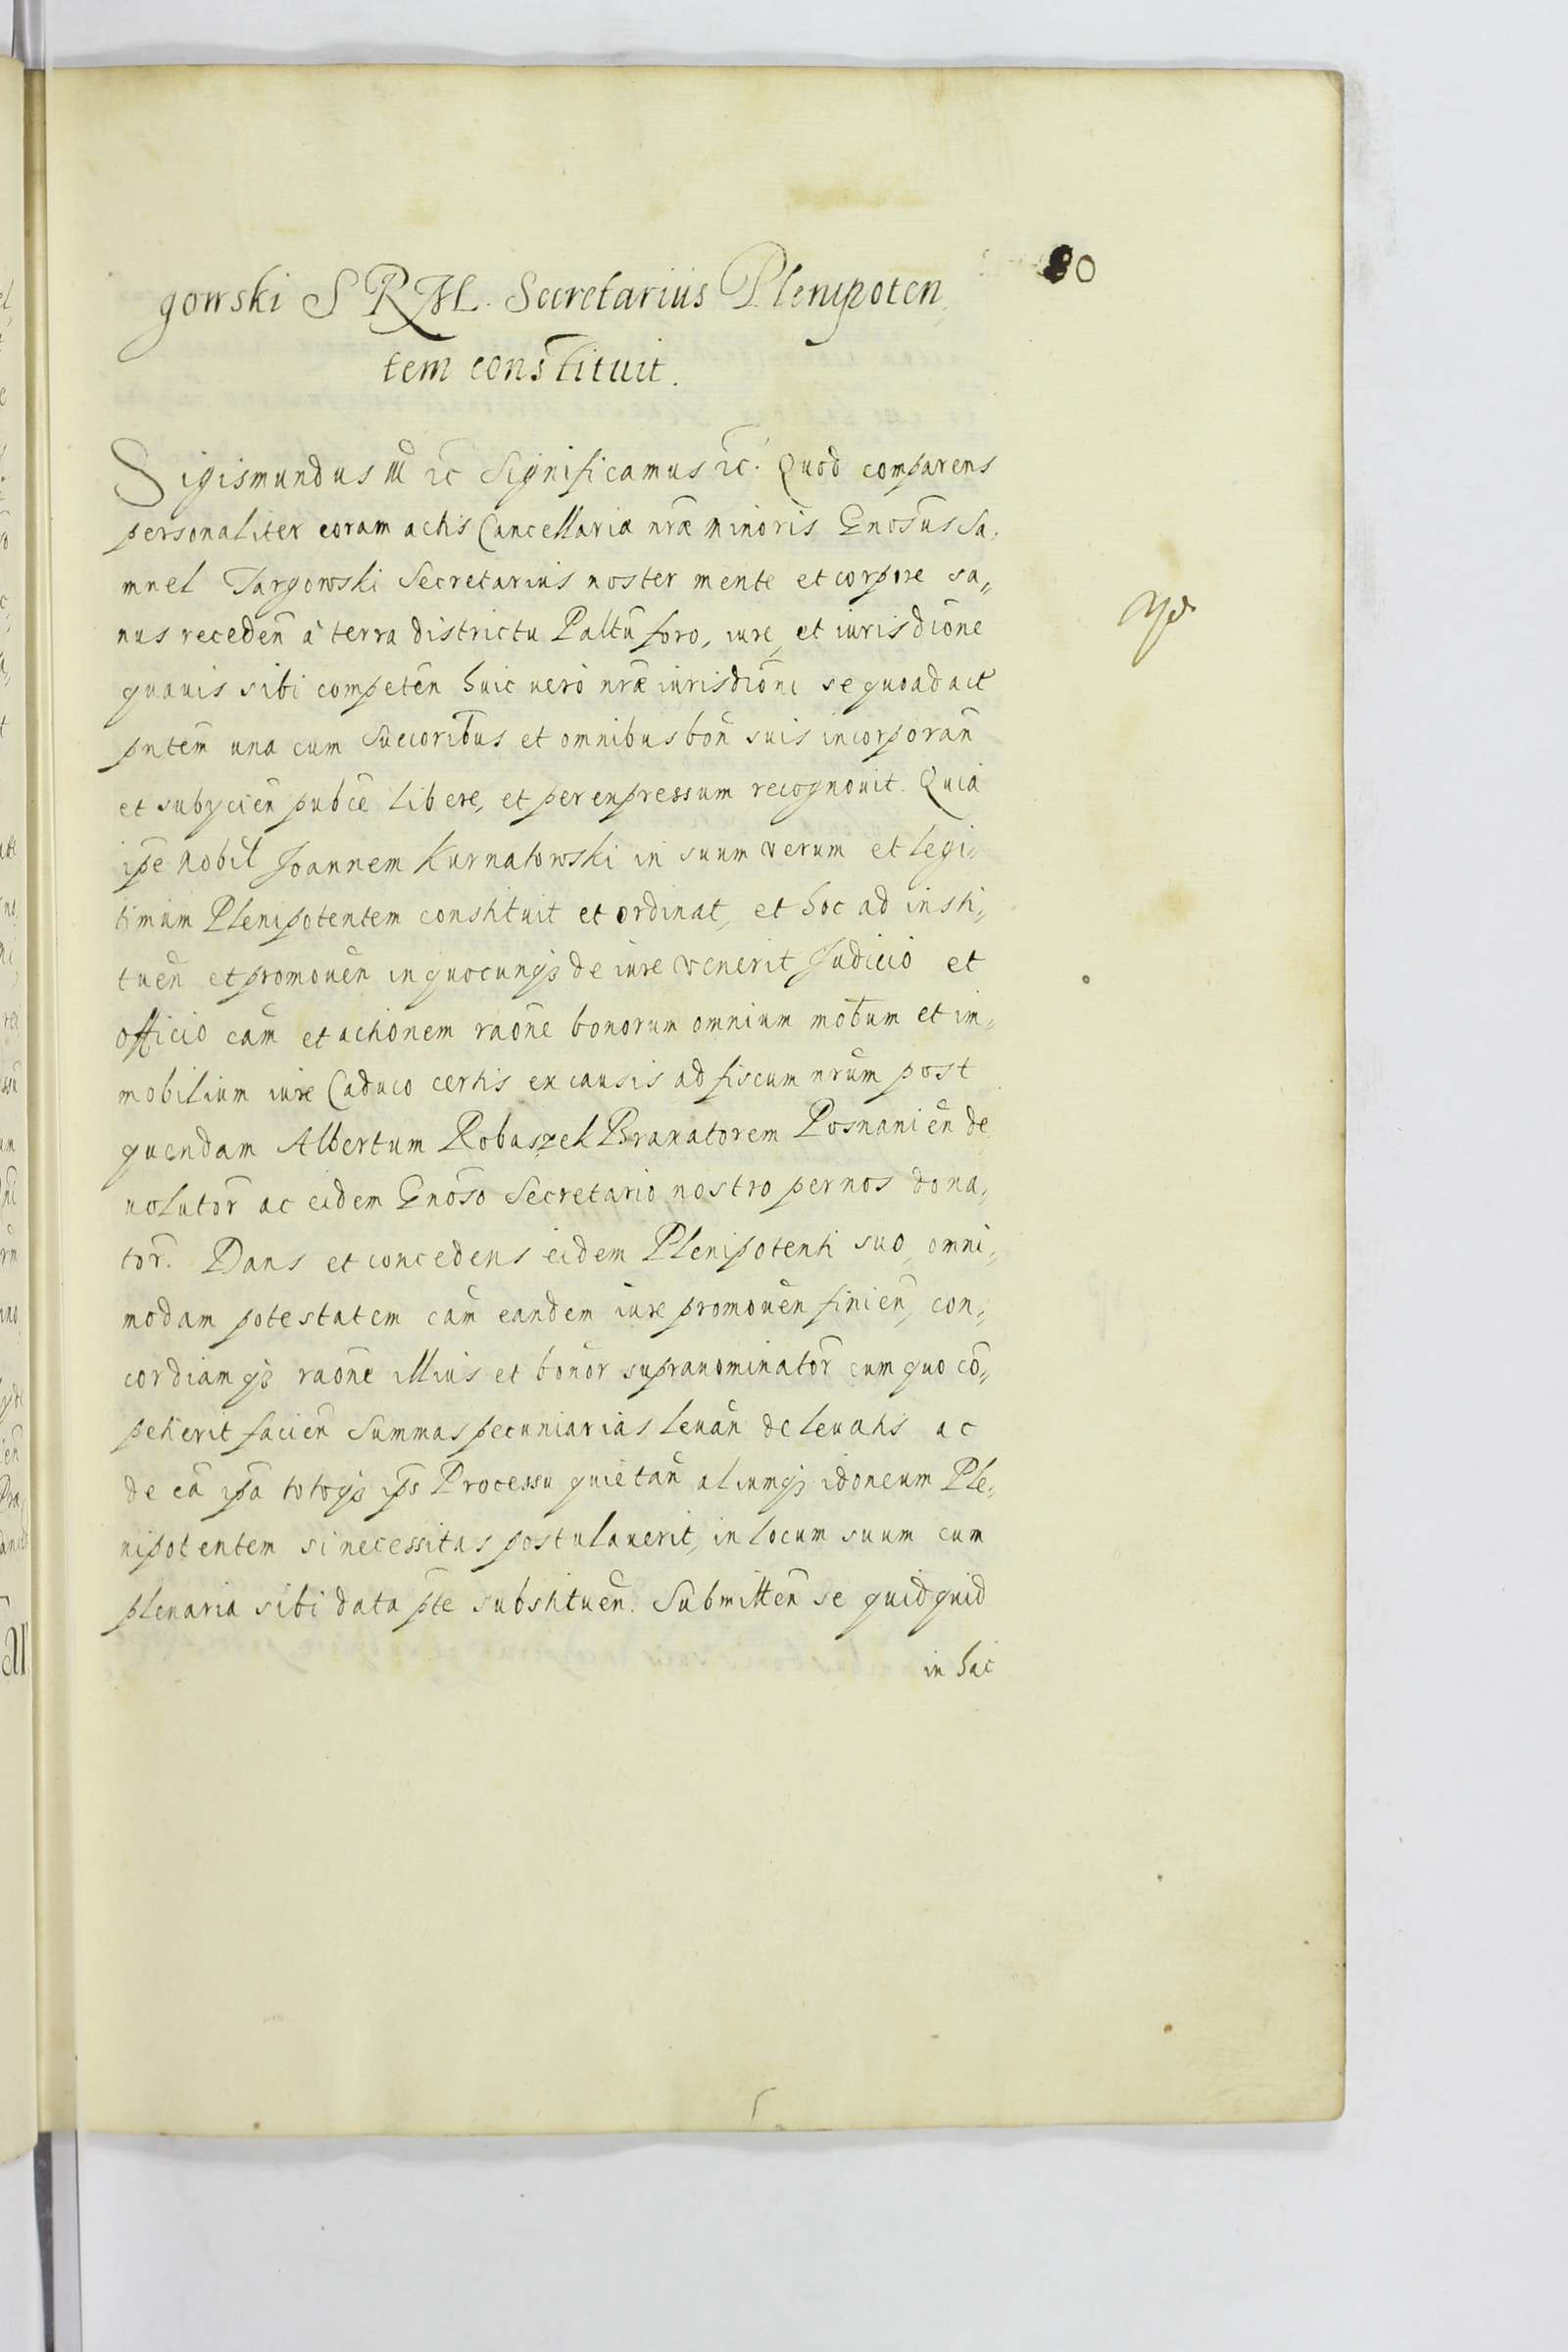 80
gowski S R M. Secretarius Plenipoten,
tem constituit.
Sigismundus III etc Significamus etc. Quod comparens
personaliter coram actis Cancellariæ nr̃æ minoris Gnosus̃ Sa,
muel Targowski Secretarius noster mente et corpore sa,,
nus receden̄ à terra districtu Palt̄u foro, iure, et iurisdic̃one
quauis sibi competen̄ huic uerò nr̃æ iurisdic̃oni se quoad act̄
pn̄tem una cum Succorib̃us et omnibus bon̄ suis incorporan̄
et subycien̄ pub̄ce libere, et per expressum recognouit. Quia
ip̄e nobil̄ Joannem Kurnatowski in suum verum et legi,,
timum Plenipotentem constituit et ordinat, et hoc ad insti,,
tuen̄ et promouen̄ in quocunq3 de iure venerit Judicio et
officio cam̄ et actionem rao̅ne bonorum omnium mob̄ium et im,,
mobilium iure Caduco certis ex causis ad fiscum nr̄um post
quendam Albertum Robaszek Braxatorem Posnanien̄ de
uolutor̄ ac eidem Gnos̄o Secretario nostro per nos dona,,
tor̄. Dans et concedens eidem Plenipotenti suo, omni,,
modam potestatem cam̄ eandem iure promouen̄ finien̄, con,,
cordiamq3 rao̅ne illius et bonor̄ supranominator̄ cum quo co̅,,
petierit facien̄ Summas pecuniarias leuan̄ de leuatis ac
de ea̅ ip̄a totoq3 ip̄s Processu quietan̄ aliumq3 idoneum Ple,,
nipotentem si necessitas postulauerit, in locum suum cum
plenaria sibi data p̄te substituen̄. Submitten̄ se quidquid
in hac